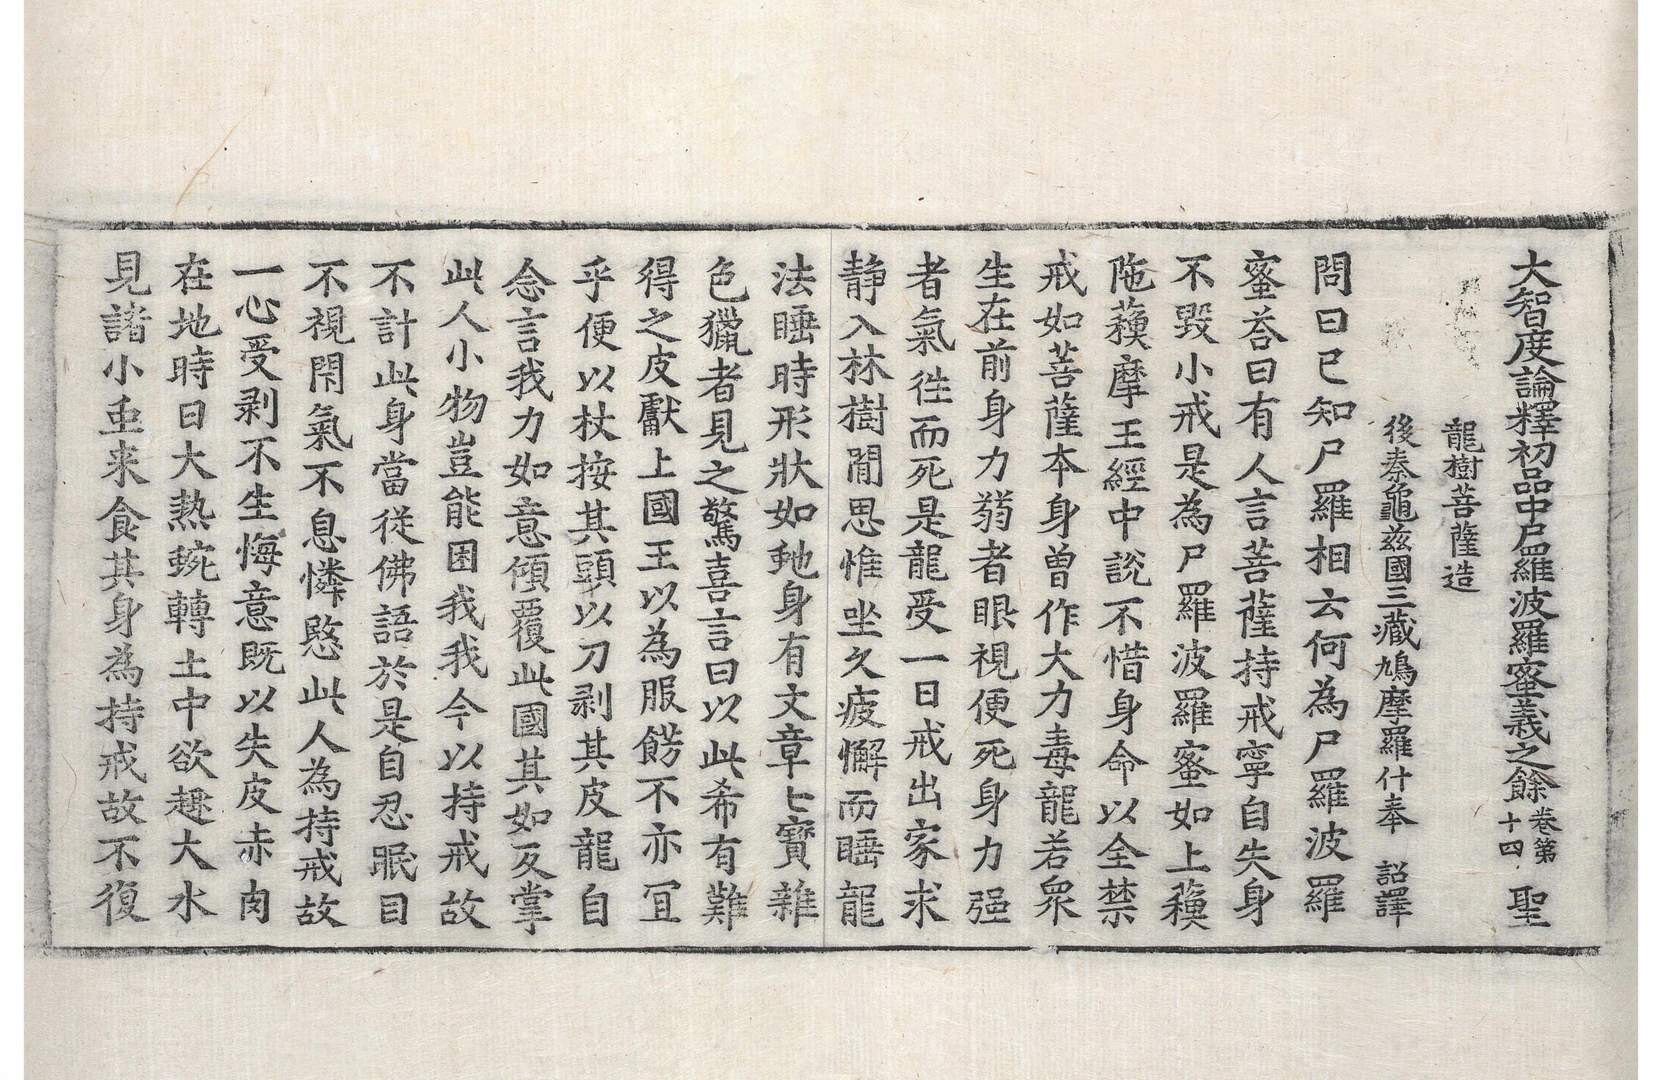 大智度論釋初品中尸羅波羅蜜義之餘卷第十四 聖
龍樹菩薩造
後秦龜兹國三藏鳩摩羅什奉 詔譯
問曰已知尸羅相云何為尸羅波羅
蜜荅曰有人言菩薩持戒寧自失身
不毀小戒是為尸羅波羅蜜如上蘓
陁蘓摩王經中說不惜身命以全禁
戒如菩薩本身曽作大力毒龍若衆
生在前身力弱者眼視便死身力强
者氣徃而死是龍受一日戒出家求
静入林樹間思惟坐久疲懈而睡龍
法睡時形狀如虵身有文章七寶雜
色獵者見之驚喜言曰以此希有難
得之皮獻上國王以為服餝不亦冝
乎便以杖按其頭以刀剥其皮龍自
念言我力如意傾覆此國其如反掌
此人小物豈能困我我今以持戒故
不計此身當從佛語於是自忍眠目
不視閇氣不息憐愍此人為持戒故
一心受剥不生悔意既以失皮赤肉
在地時日大熱蜿轉土中欲趣大水
見諸小䖝来食其身為持戒故不復